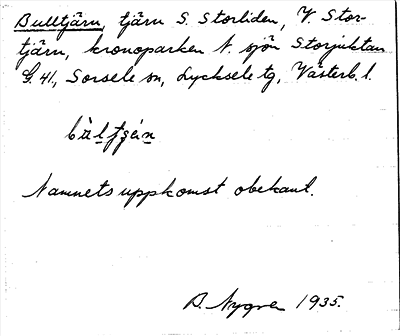 Bulltjärn, tjärn S. Storliden, V. Stor-
tjärn, kronoparken N. sjön Storjuktan
G. 41, Sorsele sn, Lycksele tg, Västerb. l.
Namnets uppkomst obekant.
B. Nygren 1935.